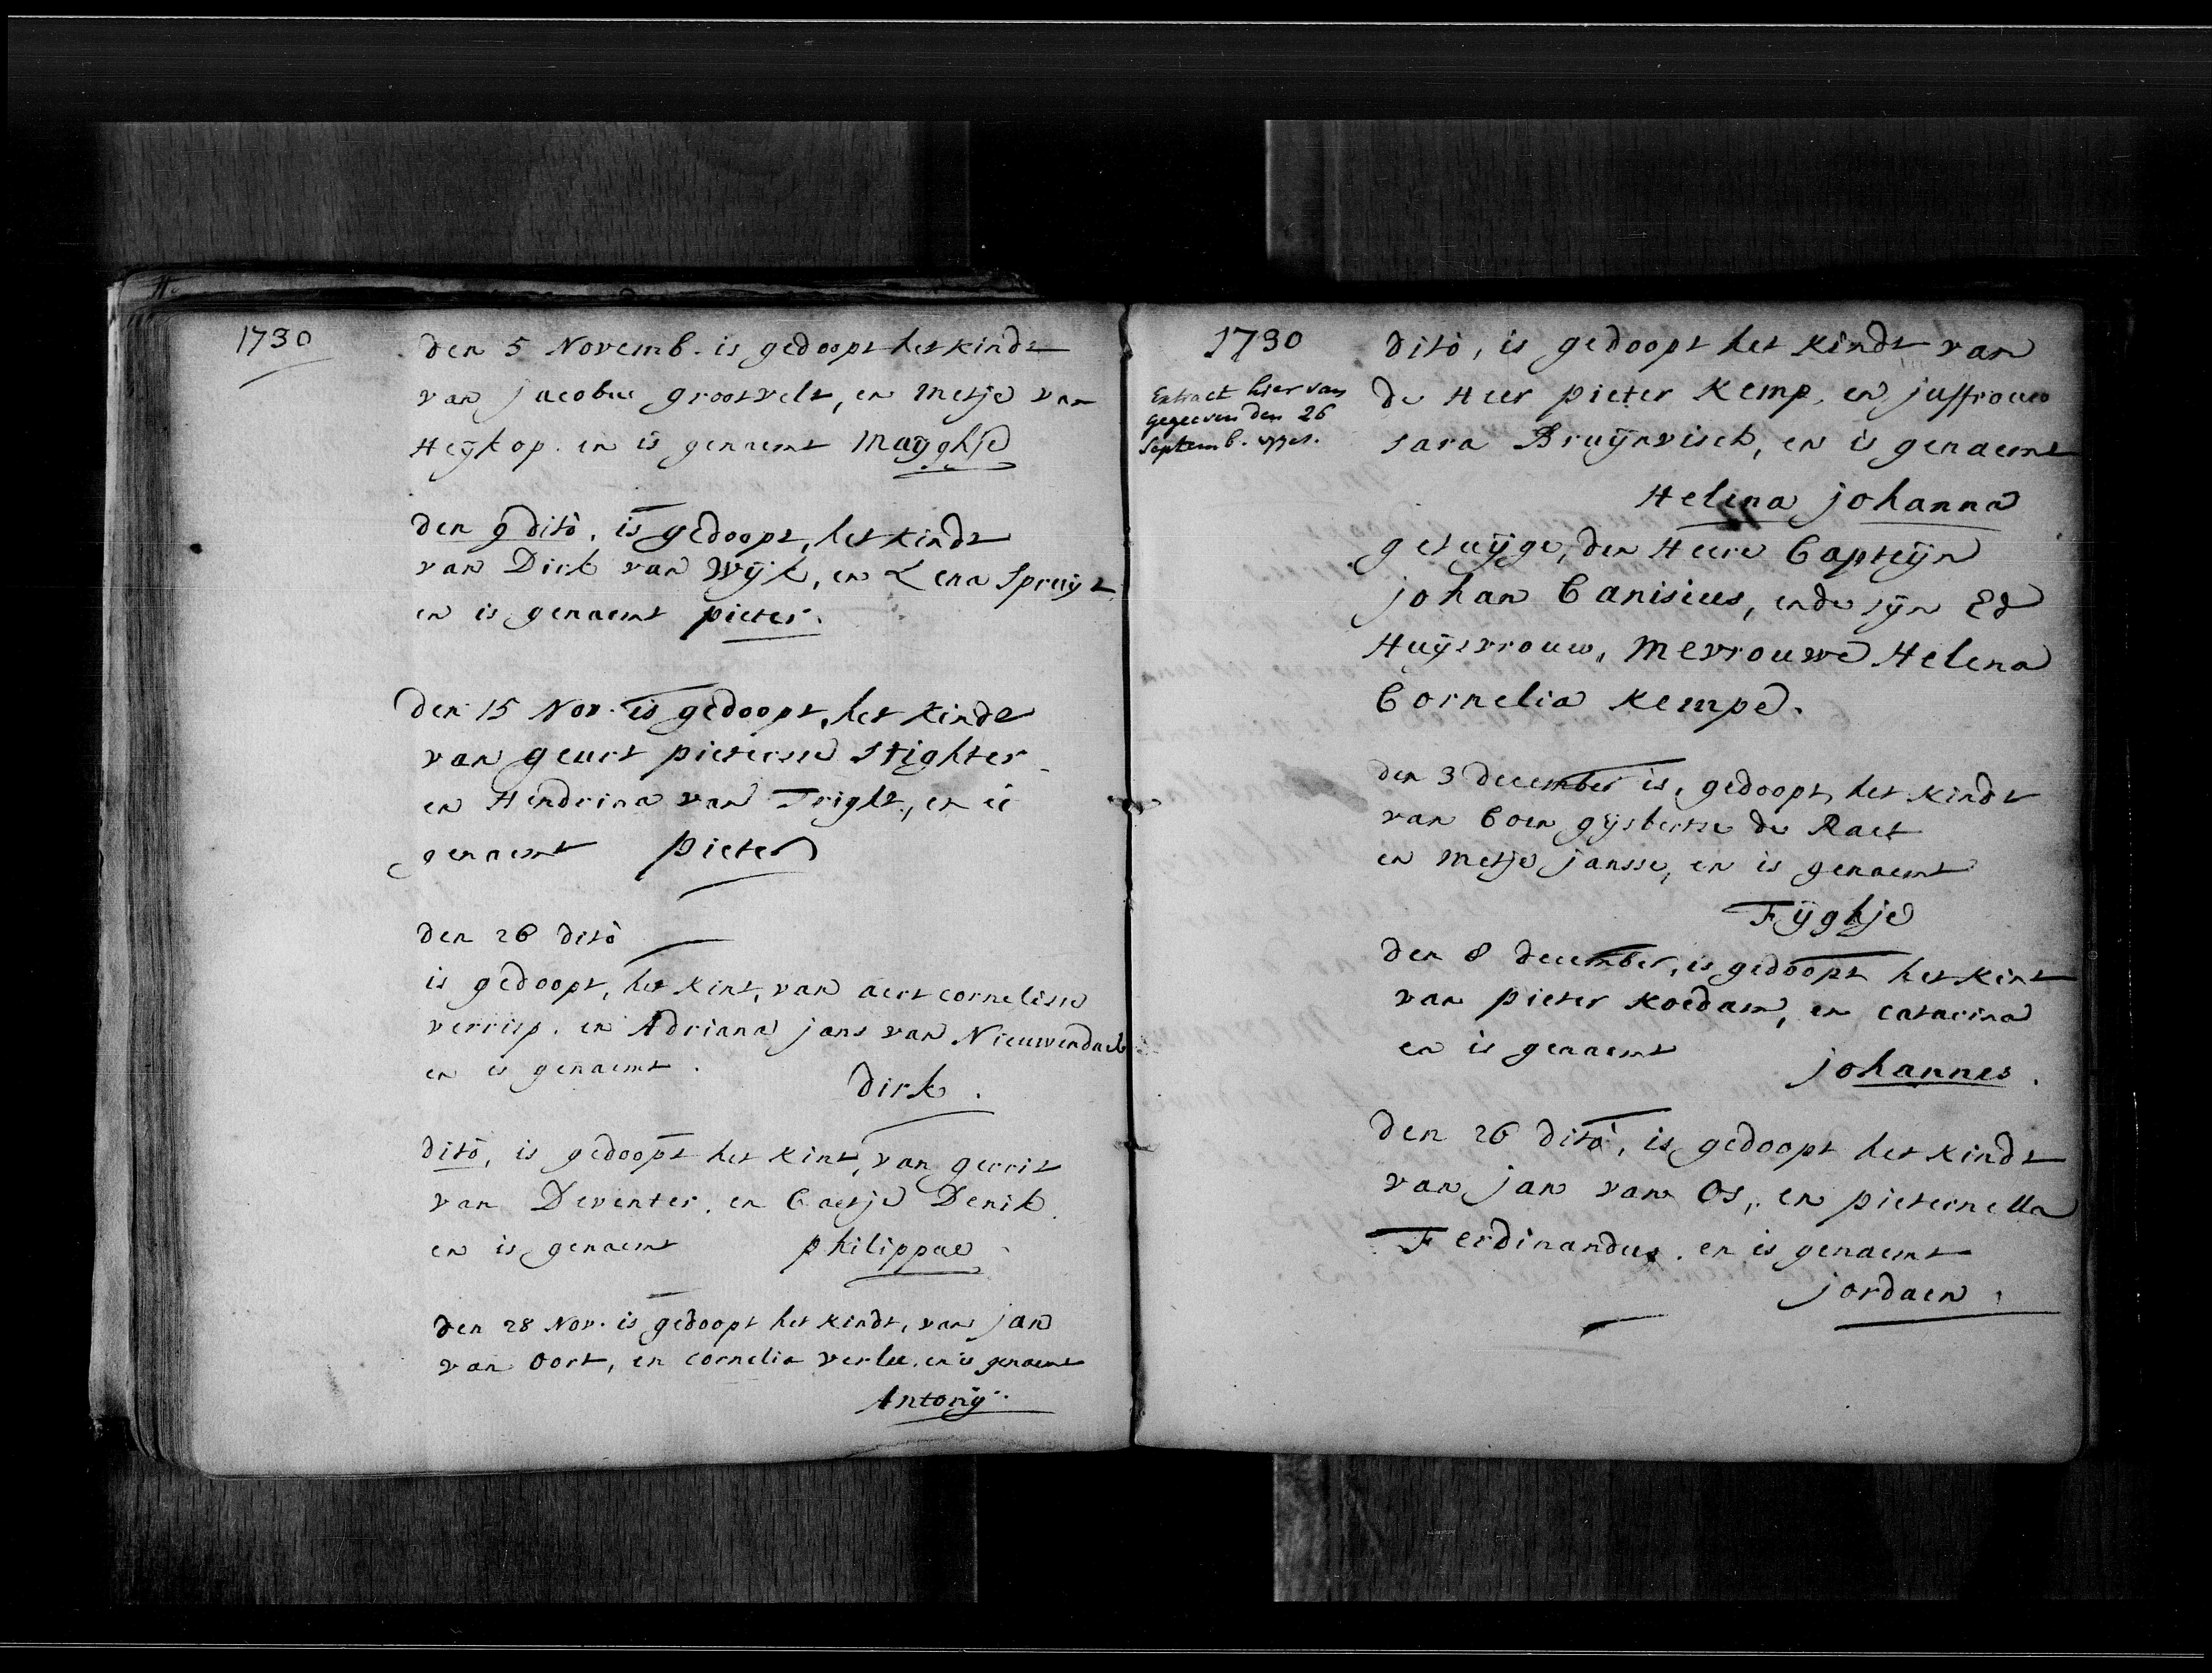 1730
den 5 Novemb. is gedoopt het kindt
van Jacobus grootvelt, en Metje van
Heÿkop. en is genaemt Maÿghje
den 9 dito, is gedoopt, het kindt
van Dirk van Wÿk, en Lena Spruÿt
en is genaemt pieter.
den 15 Nov. is gedoopt, het kindt
van geurt pieterse Stighter
en Hendrina van Tright, en is
genaemt pieter
den 26 dito
is gedoopt, het kint, van aert cornelisse
verrisp. en Adriana jans van Nieuwendael
en is genaemt.
dirk.
dito, is gedoopt het kint, van gerrit
van Deventer. en Caetje Denik.
en is genaemt philippus
den 28 Nov. is gedoopt het kindt, van jan
van Oort, en cornelia verlee. en is genaemt
Antonÿ.
1730
Extract hier van
gegeeven den 26
Septemb.
dito, is gedoopt het kindt van
de Heer pieter Kemp, en juffrouw
Sara Bruÿnvisch, en is genaemt
Helena johanna
getuÿge, den Heere Capteÿn
johan Canisius, ende sÿn Ed
Huÿsvrouw, Mevrouwe Helena
Cornelia Kempe.
den 3 december is, gedoopt, het kindt
van Coen gÿsbertse de Raet
en Metje jansse, en is genaemt
Fÿghje
den 8 december, is gedoopt het kint
van pieter Koedam, en catarina
en is genaemt
johannes.
den 26 dito, is gedoopt het kindt
van jan van Os, en pieternella
Ferdinandus. en is genaemt
jordaen.